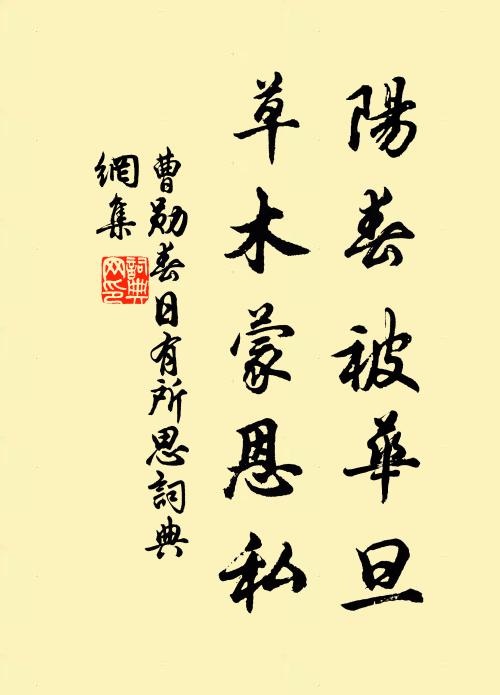 陽春被華旦
草木蒙恩私
曹勛春日有所思詞典
網集
詞典
网印